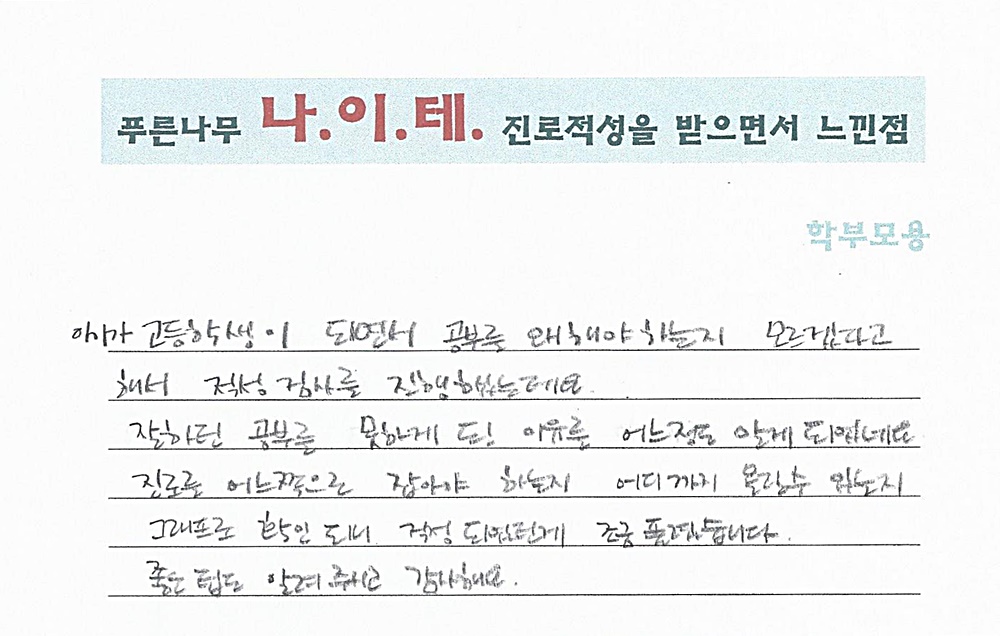 푸른나무 나.이.테. 진로적성을 받으면서 느낀점
학부모용
아이가 고등학생이 되면서 공부를 왜해야하는지 모르겠다고
해서 적성검사를 진행했는데요.
잘하던 공부를 못하게 된 이유를 어느정도 알게되었네요
진로를 어느쪽으로 잡아야 하는지 어디까지 올릴수 있는지
그래프로 확인 되니 걱정 되었던게 조금 풀렸습니다.
좋은 팁도 알려주시고 감사해요.